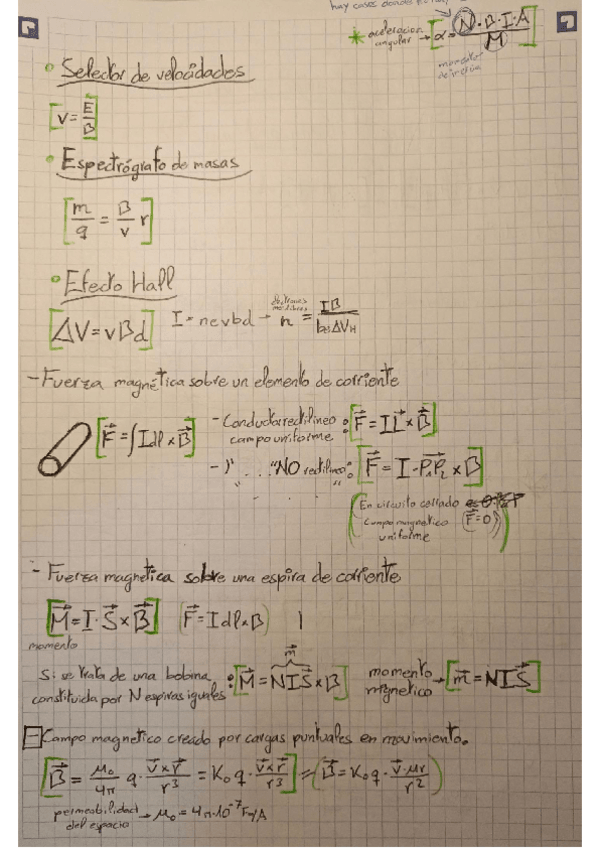 hay casos donde
* aceleración angular → [α = N·B·I·A / M]
momento de inercia
• Selector de velocidades
[v = E/B]
• Espectrógrafo de masas
[m/q = B/v r]
• Efecto Hall
[ΔV = vBd] I = nevbd → n = IB / beΔV_H
- Fuerza magnética sobre un elemento de corriente
[F⃗ = ∫Idl × B⃗] - Conductor rectilíneo campo uniforme : [F⃗ = I L⃗ × B⃗]
- )" . . . "NO rectilíneo": [F⃗ = I·P₁P₂ × B⃗]
(En circuito cerrado
campo magnetico (F⃗=0)
uniforme
- Fuerza magnetica sobre una espira de corriente
[M⃗ = I·S⃗ × B⃗] (F⃗ = Idl × B)
momento
Si se trata de una bobina, constituida por N espiras iguales : [M⃗ = NIS⃗ × B] m⃗ momento magnetico → [m⃗ = NIS⃗]
Campo magnetico creado por cargas puntuales en movimiento.
[B⃗ = μ₀/4π q · v⃗×r⃗/r³ = K₀ q · v⃗×r⃗/r³] = (B⃗ = K₀ q · v⃗·μr/r²)
permeabilidad del espacio → μ₀ = 4π·10⁻⁷